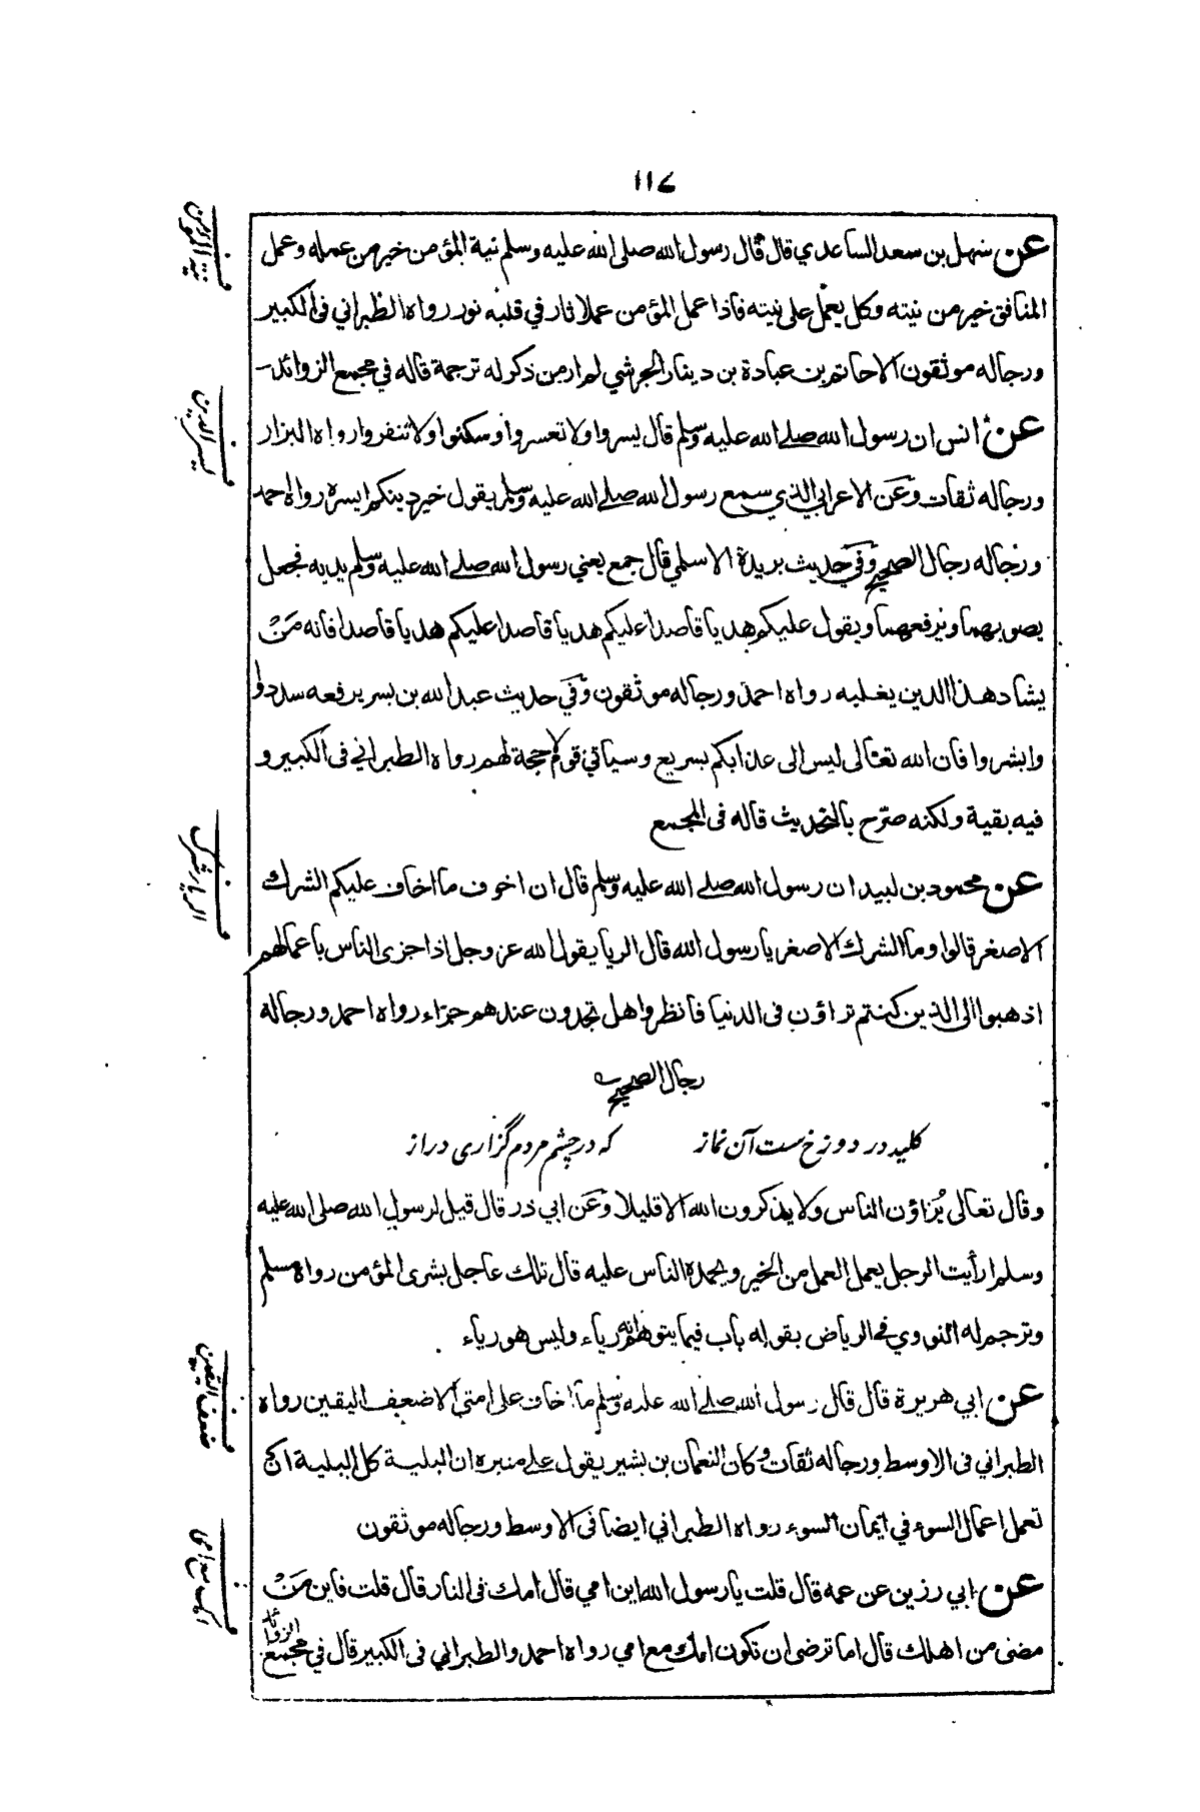 ١١٧
عن سهل بن سعد الساعدي قال قال رسول الله صلى الله عليه وسلم نية المؤمن خير من عمله وعمل
المنافق خير من نيته وكل يعمل على نيته فاذا عمل المؤمن عملا ثار في قلبه نور رواه الطبراني في الكبير
ورجاله موثقون الا حاتم بن عبادة بن دينار الجرشي لم ار من ذكر له ترجمة قاله في مجمع الزوائد
عن انس ان رسول الله صلے الله عليه وسلم قال يسروا ولا تعسروا وسكنوا ولا تنفروا رواه البزار
ورجاله ثقات وعن الاعرابي الذي سمع رسول الله صلے الله عليه وسلم يقول خير دينكم ايسره رواه احمد
ورجاله رجال الصحيح وفي حديث بريدة الاسلمي قال جمع يعني رسول الله صلے الله عليه وسلم يديه فجعل
يصوبهما ويرفعهما ويقول عليكم هديا قاصدا عليكم هديا قاصدا عليكم هديا قاصدا فانه من
يشاد هذا الدين يغلبه رواه احمد ورجاله موثقون وفي حديث عبد الله بن بسر يرفعه سددوا
وابشروا فان الله تعالى ليس الى عذابكم بسريع وسياتي قوم لا حجة لهم رواه الطبراني في الكبير و
فيه بقية ولكنه صرح بالتحديث قاله في المجمع
عن محمود بن لبيد ان رسول الله صلے الله عليه وسلم قال ان اخوف ما اخاف عليكم الشرك
الاصغر قالوا وما الشرك الاصغر يا رسول الله قال الريا يقول الله عز وجل اذا جزى الناس باعمالهم
اذهبوا الى الذين كنتم تراؤن في الدنيا فانظروا هل تجدون عندهم جزاء رواه احمد ورجاله
رجال الصحيح
كليد در دوزخ ست آن نماز که در چشم مردم گزاری دراز
وقال تعالى يراؤن الناس ولا يذكرون الله الا قليلا وعن ابي ذر قال قيل لرسول الله صلى الله عليه
وسلم ارأيت الرجل يعمل العمل من الخير ويحمده الناس عليه قال تلك عاجل بشرى المؤمن رواه مسلم
وترجم له النووي في الرياض بقوله باب فيما يتوهم انه رياء وليس هو رياء
عن ابي هريرة قال قال رسول الله صلے الله عليه وسلم ما اخاف على امتي الا ضعف اليقين رواه
الطبراني في الاوسط ورجاله ثقات وكان النعمان بن بشير يقول على منبره ان البلية كل البلية ان
تعمل اعمال السوء في ايمان السوء رواه الطبراني ايضا في الاوسط ورجاله موثقون
عن ابي رزين عن عمه قال قلت يا رسول الله اين امي قال امك في النار قال قلت فاين من
مضى من اهلك قال اما ترضى ان تكون امك مع امي رواه احمد والطبراني في الكبير قال في مجمع
الزوائد
ف نية المؤمن
ف يسر الدين
ف الريا شرك
ف ضعف اليقين
ف امك مع امي